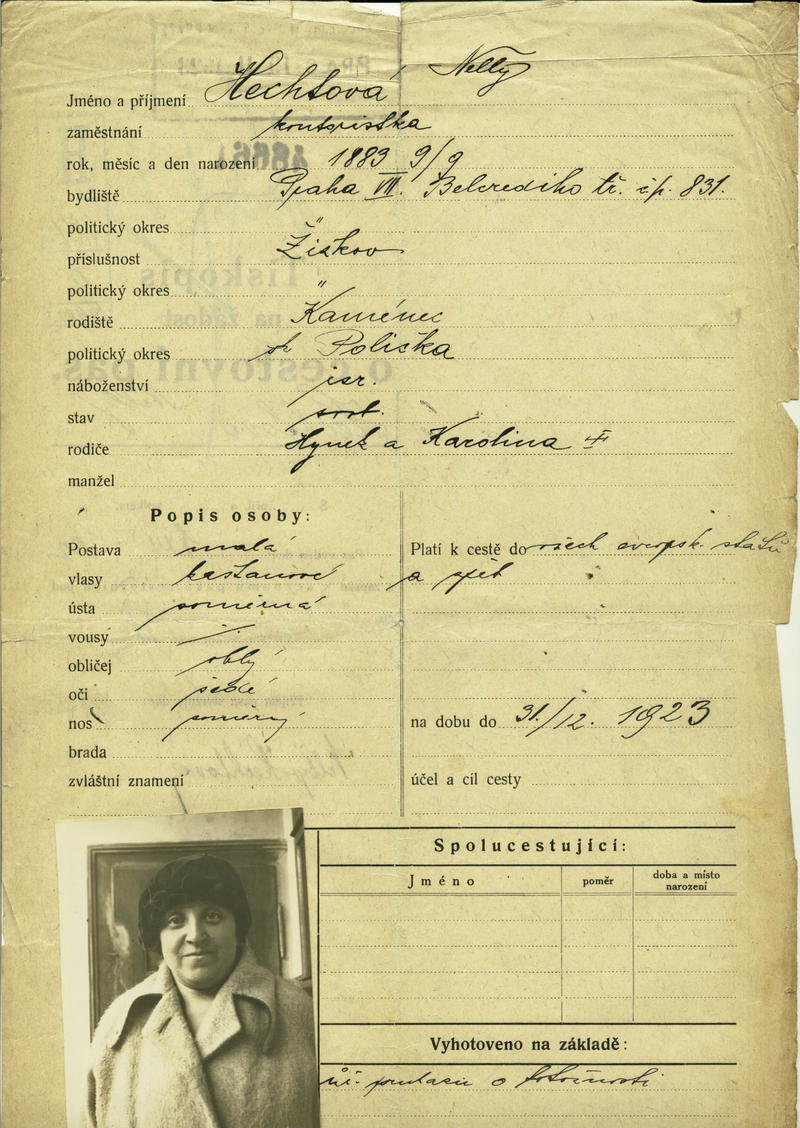 Jméno a příjmení Hechtová Nelly
zaměstnání kontoristka
rok, měsíc a den narození 1883 9/9
bydliště Praha VII. Belcrediho tř. čp. 831.
politický okres "
příslušnost Žižkov
politický okres "
rodiště Kaménec
politický okres Polička
náboženství isr.
stav svob.
rodiče Hynek a Karolina
manžel
Popis osoby:
Postava malá
vlasy kaštanové
ústa souměrná
vousy
obličej oblý
oči šedé
nos souměrný
brada
zvláštní znamení
Platí k cestě do všech evropsk. států
a zpět
na dobu do 31/12. 1923
účel a cíl cesty
Spolucestující:
Jméno
poměr
doba a místo
narození
Vyhotoveno na základě:
o totožnosti